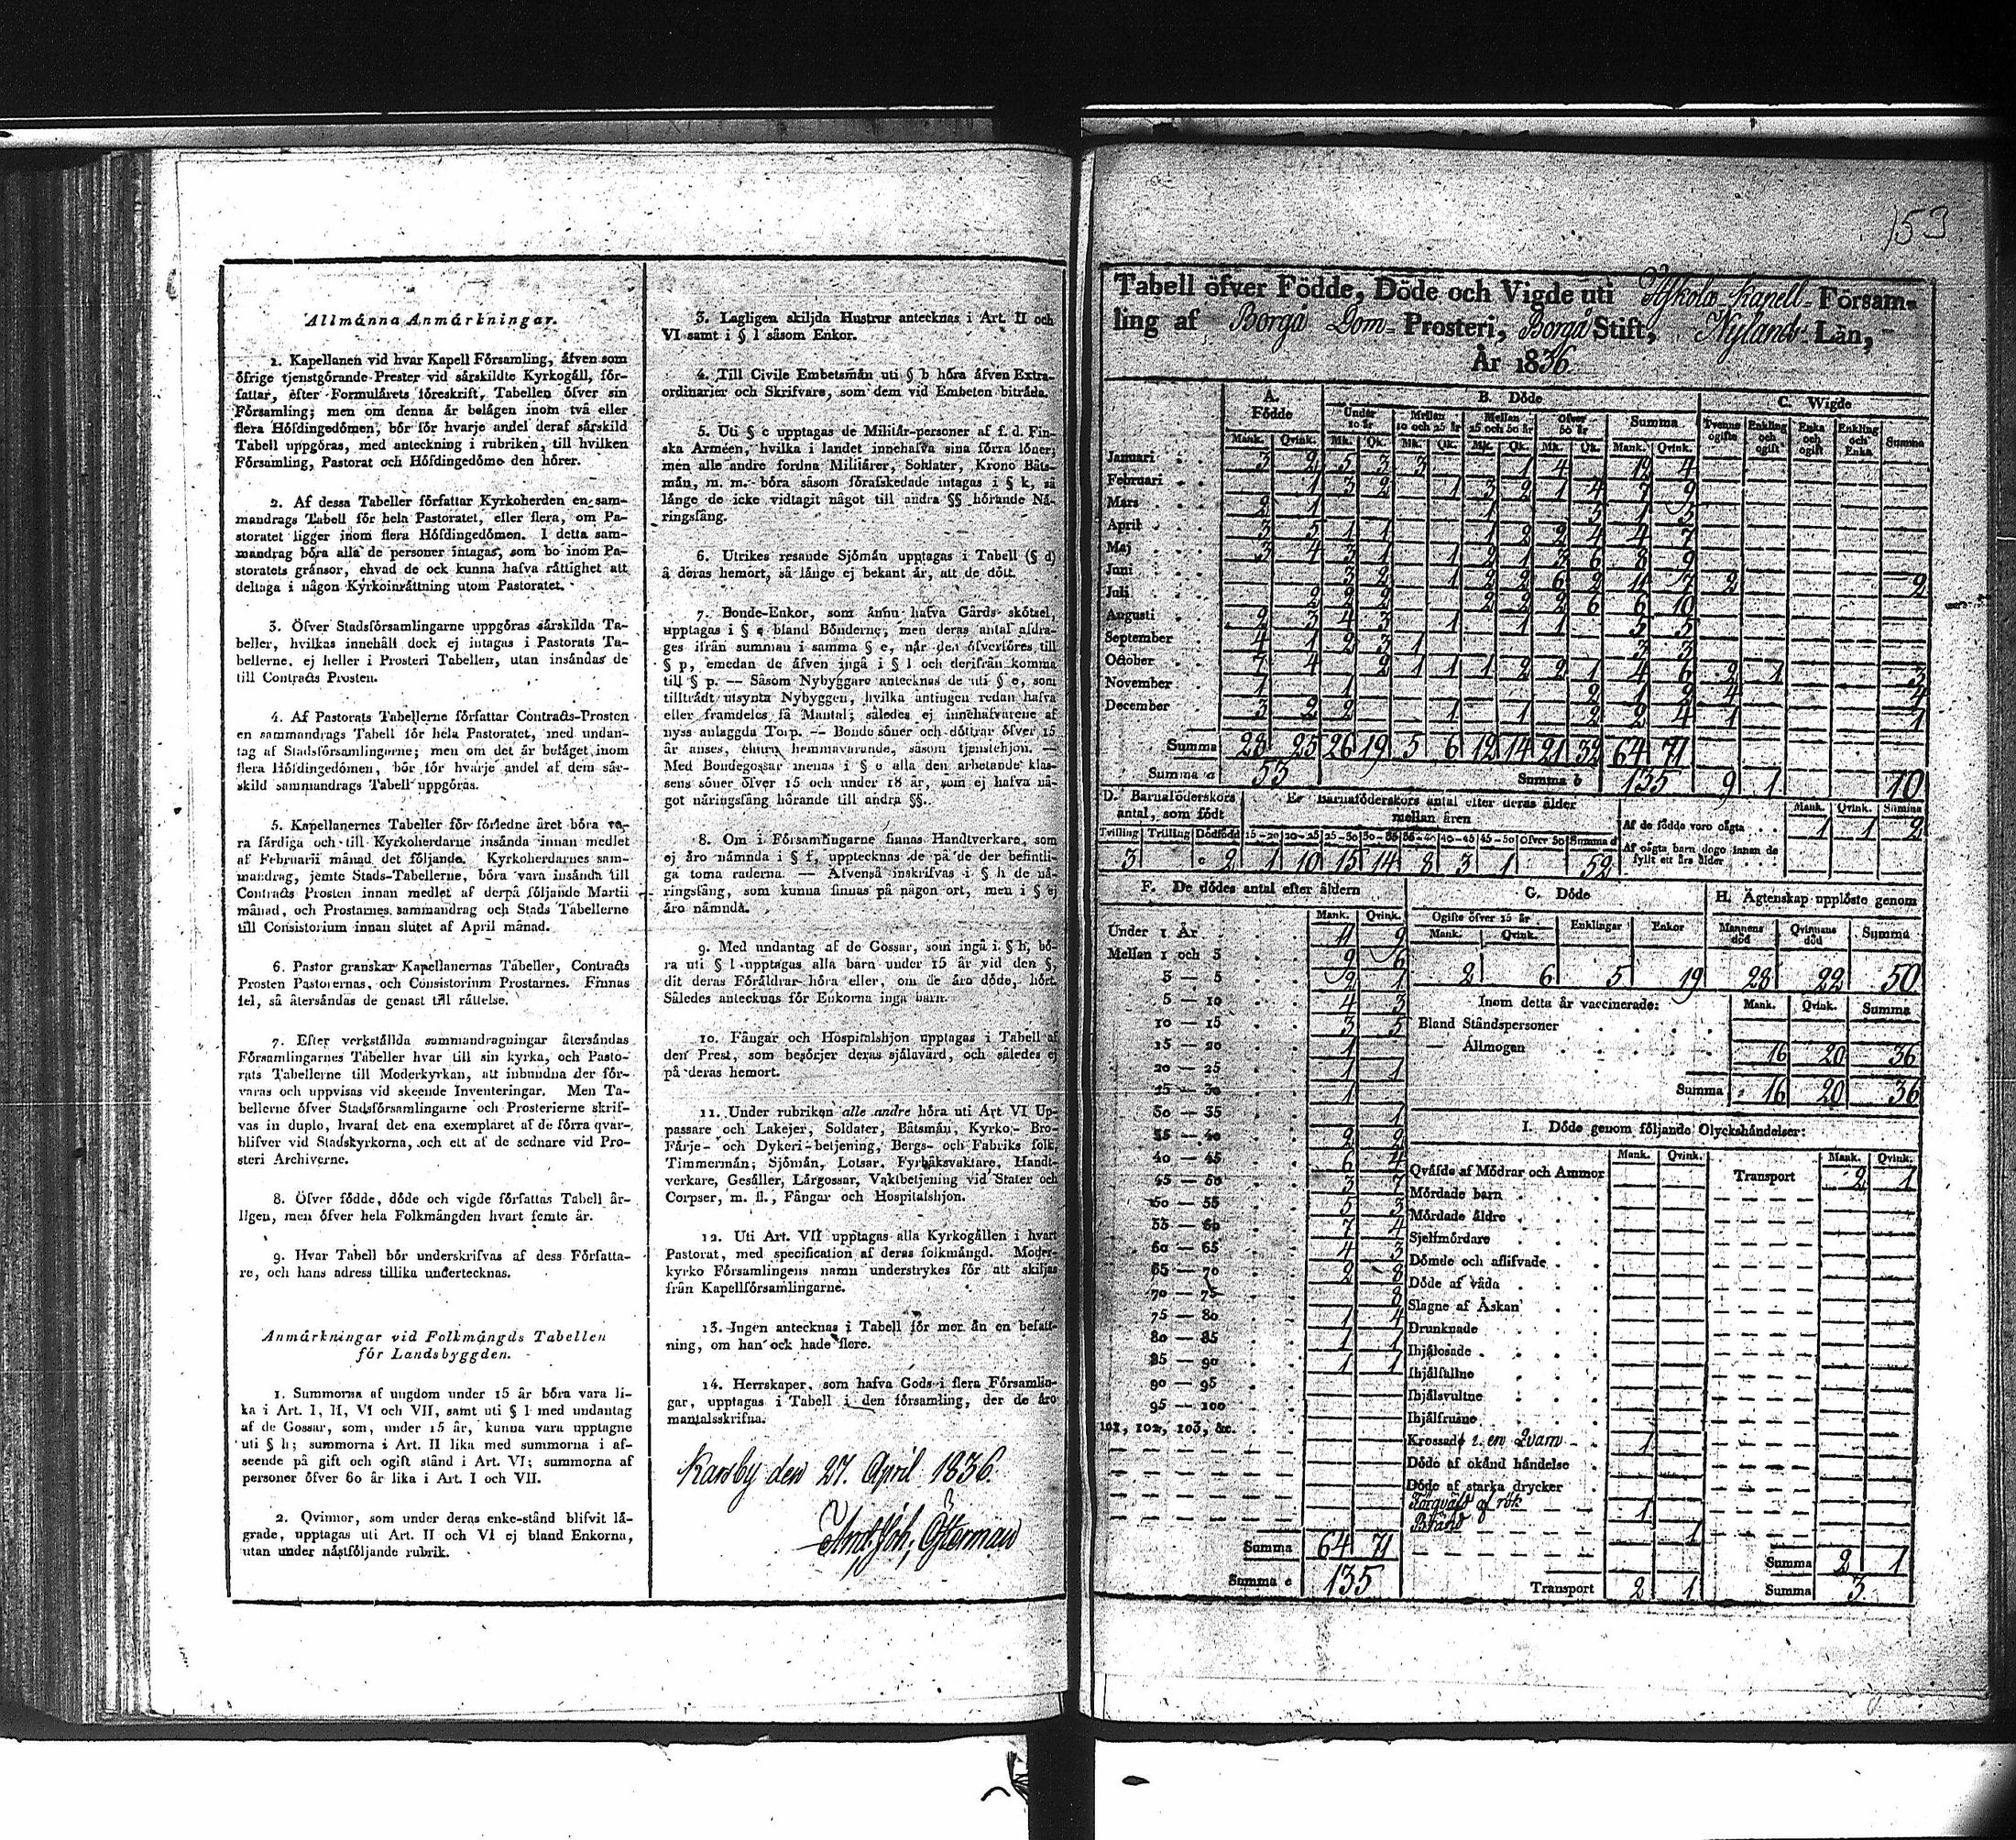 Allmänna Anmärkningar.
1. Kapellanen vid hvar Kapell Församling, äfven som
öfrige tjenstgörande Prester vid särskildte Kyrkogäll, för-
fattar, efter Formulärets föreskrift, Tabellen öfver sin
Församling; men om denna är belägen inom två eller
flera Höfdingedömen, bör för hvarje andel deraf särskild
Tabell uppgöras, med anteckning i rubriken, till hvilken
Församling, Pastorat och Höfdingedöme den hörer.
2. Af dessa Tabeller författar Kyrkoherden en sam-
mandrags Tabell för hela Pastoratet, eller flera, om Pa-
storatet ligger inom flera Höfdingedömen. I detta sam-
mandrag böra alla de personer intagas, som bo inom Pa-
storatets gränsor, ehvad de ock kunna hafva rättighet att
deltaga i någon Kyrkoinrättning utom Pastoratet.
3. Öfver Stadsförsamlingarne uppgöras särskilda Ta-
beller, hvilkas innehåll dock ej intagas i Pastorats Ta-
bellerne, ej heller i Prosteri Tabellen, utan insändas de
till Contracts Prosten.
4. Af Pastorats Tabellerne författar Contracts-Prosten
en sammandrags Tabell för hela Pastoratet, med undan-
tag af Stadsförsamlingarne; men om det är beläget inom
flera Höfdingedömen, bör för hvarje andel af dem sär-
skild sammandrags Tabell uppgöras.
5. Kapellanernes Tabeller för förledne året böra va-
ra färdiga och till Kyrkoherdarne insända innan medlet
af Februarii månad det följande. Kyrkoherdarnes sam-
mandrag, jemte Stads-Tabellerne, böra vara insända till
Contracts Prosten innan medlet af derpå följande Martii
månad, och Prostarnes sammandrag och Stads Tabellerne
till Consistorium innan slutet af April månad.
6. Pastor granskar Kapellanernas Tabeller, Contracts
Prosten Pastorernas, och Consistorium Prostarnes. Finnas
fel, så återsändas de genast till rättelse.
7. Efter verkställda sammandragningar återsändas
Församlingarnes Tabeller hvar till sin kyrka, och Pasto-
rats Tabellerne till Moderkyrkan, att inbundna der för-
varas och uppvisas vid skeende Inventeringar. Men Ta-
bellerne öfver Stadsförsamlingarne och Prosterierne skrif-
vas in duplo, hvaraf det ena exemplaret af de förra qvar-
blifver vid Stadskyrkorna, och ett af de sednare vid Pro-
steri Archiverne.
8. Öfver födde, döde och vigde författas Tabell år-
ligen, men öfver hela Folkmängden hvart femte år.
9. Hvar Tabell bör underskrifvas af dess Författa-
re, och hans adress tillika undertecknas.
Anmärkningar vid Folkmängds Tabellen
för Landsbyggden.
1. Summorna af ungdom under 15 år böra vara li-
ka i Art. I, II, VI och VII, samt uti § l med undantag
af de Gossar, som, under 15 år, kunna vara upptagne
uti § h; summorna i Art. II lika med summorna i af-
seende på gift och ogift stånd i Art. VI; summorna af
personer öfver 60 år lika i Art. I och VII.
2. Qvinnor, som under deras enke-stånd blifvit lä-
grade, upptagas uti Art. II och VI ej bland Enkorna,
utan under nästföljande rubrik.
3. Lagligen skiljda Hustrur antecknas i Art. II och
VI samt i § l såsom Enkor.
4. Till Civile Embetsmän uti § b höra äfven Extra-
ordinarier och Skrifvare, som dem vid Embeten biträda.
5. Uti § c upptagas de Militär-personer af f. d. Fin-
ska Arméen, hvilka i landet innehafva sina förra löner;
men alle andre fordna Militärer, Soldater, Krono Båts-
män, m. m. böra såsom förafskedade intagas i § k, så
länge de icke vidtagit något till andra §§ hörande Nä-
ringsfång.
6. Utrikes resande Sjömän upptagas i Tabell (§ d)
å deras hemort, så länge ej bekant är, att de dött.
7. Bonde-Enkor, som ännu hafva Gårds skötsel,
upptagas i § e bland Bönderne; men deras antal afdra-
ges ifrån summan i samma § e, når den öfverföres till
§ p, emedan de äfven ingå i § l och derifrån komma
till § p. — Såsom Nybyggare antecknas de uti § e, som
tillträdt utsynta Nybyggen, hvilka antingen redan hafva
eller framdeles få Mantal; således ej innehafvarene af
nyss anlaggda Torp. — Bonde söner och döttrar öfver 15
år anses, ehuru hemmavarande, såsom tjenstehjon. —
Med Bondegossar menas i § e alla den arbetande klas-
sens söner öfver 15 och under 18 år, som ej hafva nå-
got näringsfång hörande till andra §§.
8. Om i Församlingarne finnas Handtverkare, som
ej äro nämnda i § f, upptecknas de på de der befintli-
ga toma raderna. — Äfvenså inskrifvas i § h de nä-
ringsfång, som kunna finnas på någon ort, men i § ej
äro nämnda.
9. Med undantag af de Gossar, som ingå i § h, bö-
ra uti § l upptagas alla barn under 15 år vid den §,
dit deras Föräldrar höra eller, om de äro döde, hört.
Således antecknas för Enkorna inga barn.
10. Fångar och Hospitalshjon upptagas i Tabell af
den Prest, som besörjer deras själavård, och således ej
på deras hemort.
11. Under rubriken alle andre höra uti Art VI Up-
passare och Lakejer, Soldater, Båtsmän, Kyrko- Bro-
Färje- och Dykeri-betjening, Bergs- och Fabriks folk,
Timmermän; Sjömän, Lotsar, Fyrbåksvaktare, Handt-
verkare, Gesäller, Lärgossar, Vaktbetjening vid Stater och
Corpser, m. fl., Fångar och Hospitalshjon.
12. Uti Art. VII upptagas alla Kyrkogällen i hvart
Pastorat, med specification af deras folkmängd. Moder-
kyrko Församlingens namn understrykes för att skiljas
från Kapellförsamlingarne.
13. Ingen antecknas i Tabell för mer än en befatt-
ning, om han ock hade flere.
14. Herrskaper, som hafva Gods i flera Församlin-
gar, upptagas i Tabell i den församling, der de äro
mantalsskrifna.
Karsby den 27. April 1836.
Joh. Österman
153
Tabell öfver Födde, Döde och Vigde uti Askola Kapell- Försam-
ling af Borgå Dom- Prosteri, Borgå Stift, Nylands Län,
År 1836.
A. Födde B. Döde C. Wigde
Under 10 år Mellan 10 och 25 år Mellan 25 och 50 år Öfver 50 år Summa Tvenne ogifte Enkling och ogift Enka och ogift Enkling och Enka Summa
Mank. Qvink. Mk. Qk. Mk. Qk. Mk. Qk. Mk. Qk. Mank. Qvink.
Januari 3 2 5 3 3 1 4 12 4
Februari 1 3 2 1 3 2 1 4 7 9
Mars 2 1 1 5 1 5
April 3 5 1 1 1 2 2 4 4 7
Maj 3 4 3 1 1 2 1 3 6 8 9
Juni 3 2 1 2 2 6 2 11 7 2 2
Juli 2 2 2 2 2 2 6 6 10
Augusti 2 3 4 3 1 1 1 5 5
September 4 1 2 3 1 3 3
October 7 4 2 1 1 1 2 2 1 4 6 2 1 3
November 1 1 2 1 2 4 4
December 3 2 2 1 1 2 2 4 1 1
Summa 28 25 26 19 5 6 12 14 21 32 64 71
Summa a 53 Summa b 135 9 1 10
D. Barnaföderskors antal, som födt
E. Barnaföderskors antal efter deras ålder mellan åren
Mank. Qvink. Summa
Tvilling Trilling Dödfödd 15-20 20-25 25-30 30-35 35-40 40-45 45-50 Öfver 50 Summa d
3 2 1 10 15 14 8 3 1 52
Af de födde voro oägta 1 1 2
Af oägta barn dogo innan de
fyllt ett års ålder
F. De dödes antal efter åldern
Mank. Qvink.
Under 1 År 11 9
Mellan 1 och 3 9 6
3 — 5 2 1
5 — 10 4 3
10 — 15 3 5
15 — 20 1
20 — 25 1 1
25 — 30 1
30 — 35 1
35 — 40 2 2
40 — 45 6 4
45 — 50 3 7
50 — 55 5 3
55 — 60 7 4
60 — 65 4 3
65 — 70 2 8
70 — 75 8
75 — 80 1 4
80 — 85 1 1
85 — 90 1 1
90 — 95
95 — 100
101, 102, 103, &c.
Summa 64 71
Summa e 135
G. Döde
Ogifte öfver 15 år Enklingar Enkor
Mank. Qvink.
2 6 5 19
H. Ägtenskap upplöste genom
Mannens död Qvinnans död Summa
28 22 50
Inom detta år vaccinerade: Mank. Qvink. Summa
Bland Ståndspersoner
— Allmogen 16 20 36
Summa 16 20 36
I. Döde genom följande Olyckshändelser:
Mank. Qvink. Mank. Qvink.
Qväfde af Mödrar och Ammor Transport 2 1
Mördade barn
Mördade äldre
Sjelfmördare
Dömde och aflifvade
Döde af våda
Slagne af Åskan
Drunknade
Ihjälosade
Ihjälfallne
Ihjälsvultne
Ihjälfrusne
Krossade i en Qvarn 1
Döde af okänd händelse
Döde af starka drycker
Förqväfd af rök 1
Bränd 1
Summa 2 1
Transport 2 1 Summa 3.